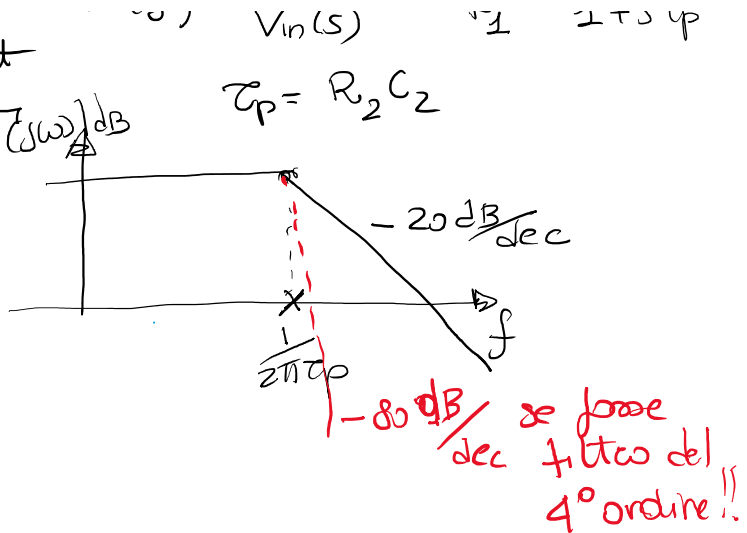 Vin(s)
τp = R2C2
T(jω)|dB
-20 dB/dec
f
1/2πτp
-80 dB/dec se fosse
filtro del
4° ordine!!